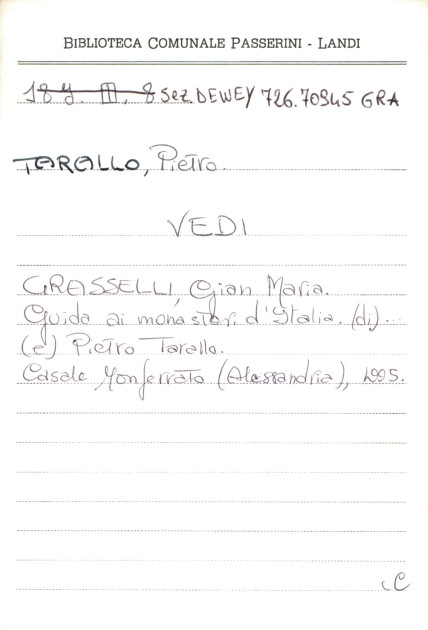 BIBLIOTECA COMUNALE PASSERINI - LANDI
18 Y. III. 8 Sez. DEWEY 726.70945 GRA
TARALLO, Pietro.
VEDI
GRASSELLI, Gian Maria.
Guida ai monasteri d'Italia. (di)...
(e) Pietro Tarallo.
Casale Monferrato (Alessandria), 1995.
C